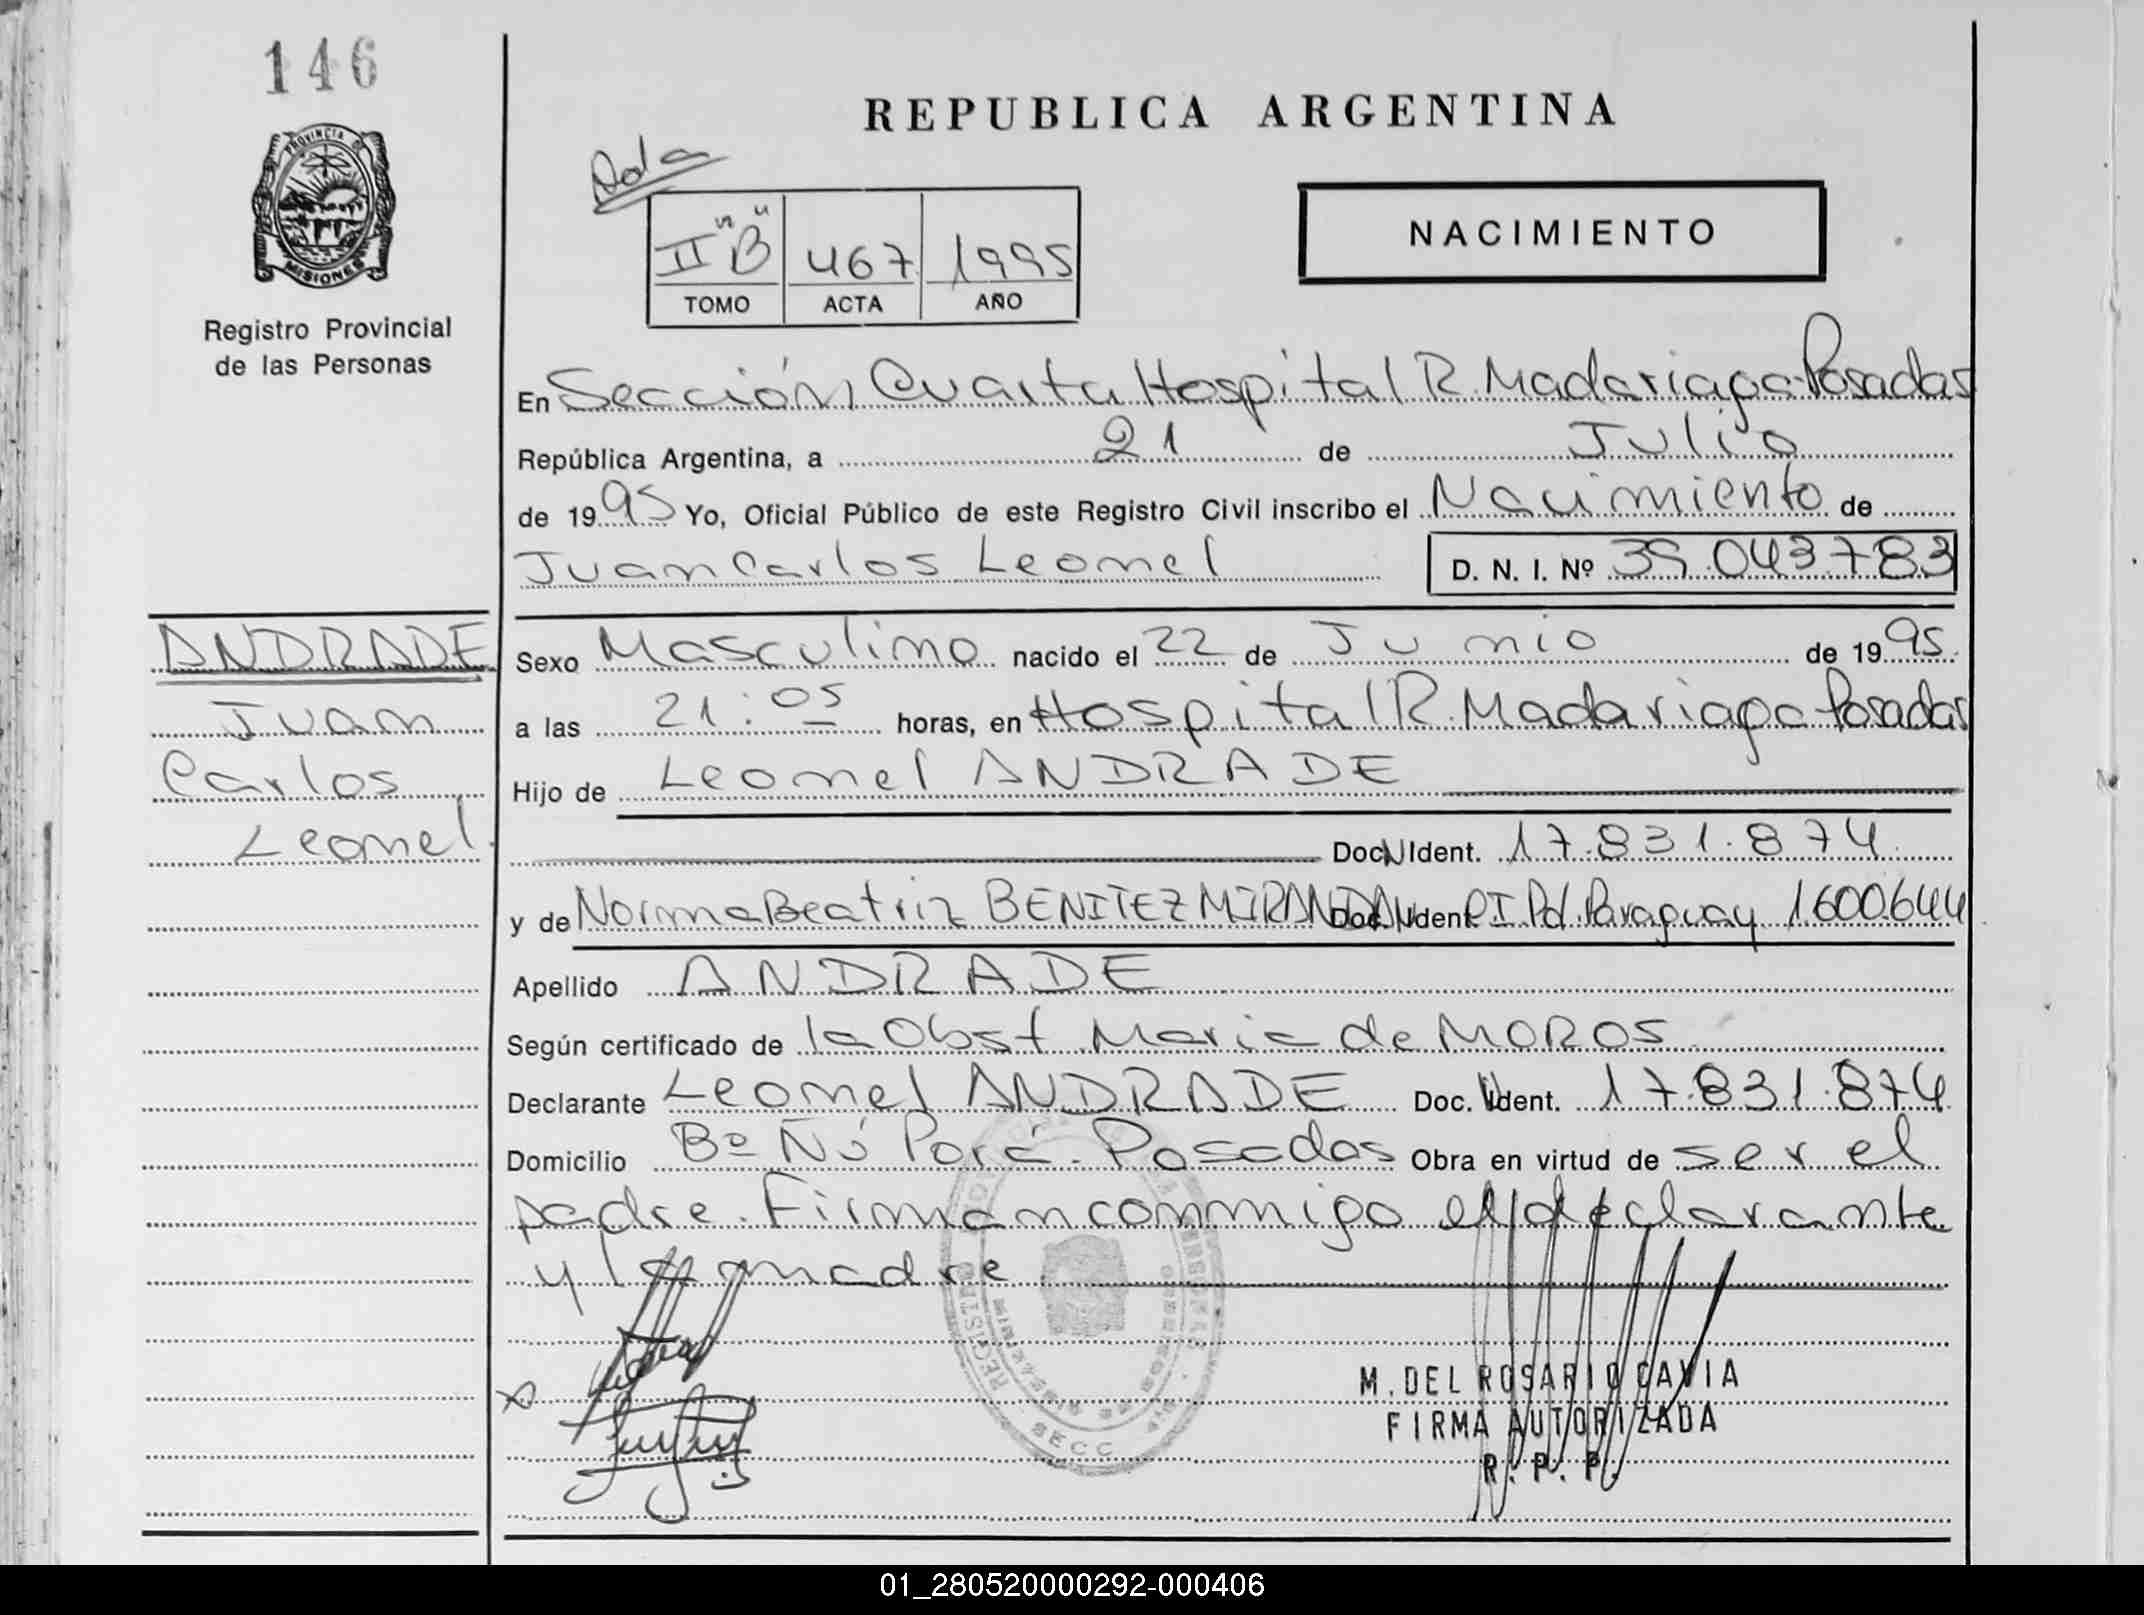 146
PROVINCIA DE
MISIONES
Registro Provincial
de las Personas
REPUBLICA ARGENTINA
NACIMIENTO
II "B" 467 1995
TOMO ACTA AÑO
En Sección Cuarta Hospital R. Madariaga-Posadas
República Argentina, a 21 de Julio
de 1995 Yo, Oficial Público de este Registro Civil inscribo el Nacimiento de
Juan Carlos Leonel D. N. I. Nº 39.043783
ANDRADE
Juan
Carlos
Leonel
Sexo Masculino nacido el 22 de Junio de 1995
a las 21:05 horas, en Hospital R. Madariaga Posadas
Hijo de Leonel ANDRADE
Doc. N Ident. 17.831.874
y de Norma Beatriz BENITEZ MIRANDA Doc. N Ident. CI. Pol. Paraguay 1.600.644
Apellido ANDRADE
Según certificado de la Obst Maria de MOROS
Declarante Leonel ANDRADE Doc. N Ident. 17.831.874
Domicilio Bº Ñú Porá - Posadas Obra en virtud de ser el
padre. Firman conmigo el declarante
y la madre
SECC
M. DEL ROSARIO CAVIA
FIRMA AUTORIZADA
R. P. P.
01_280520000292-000406